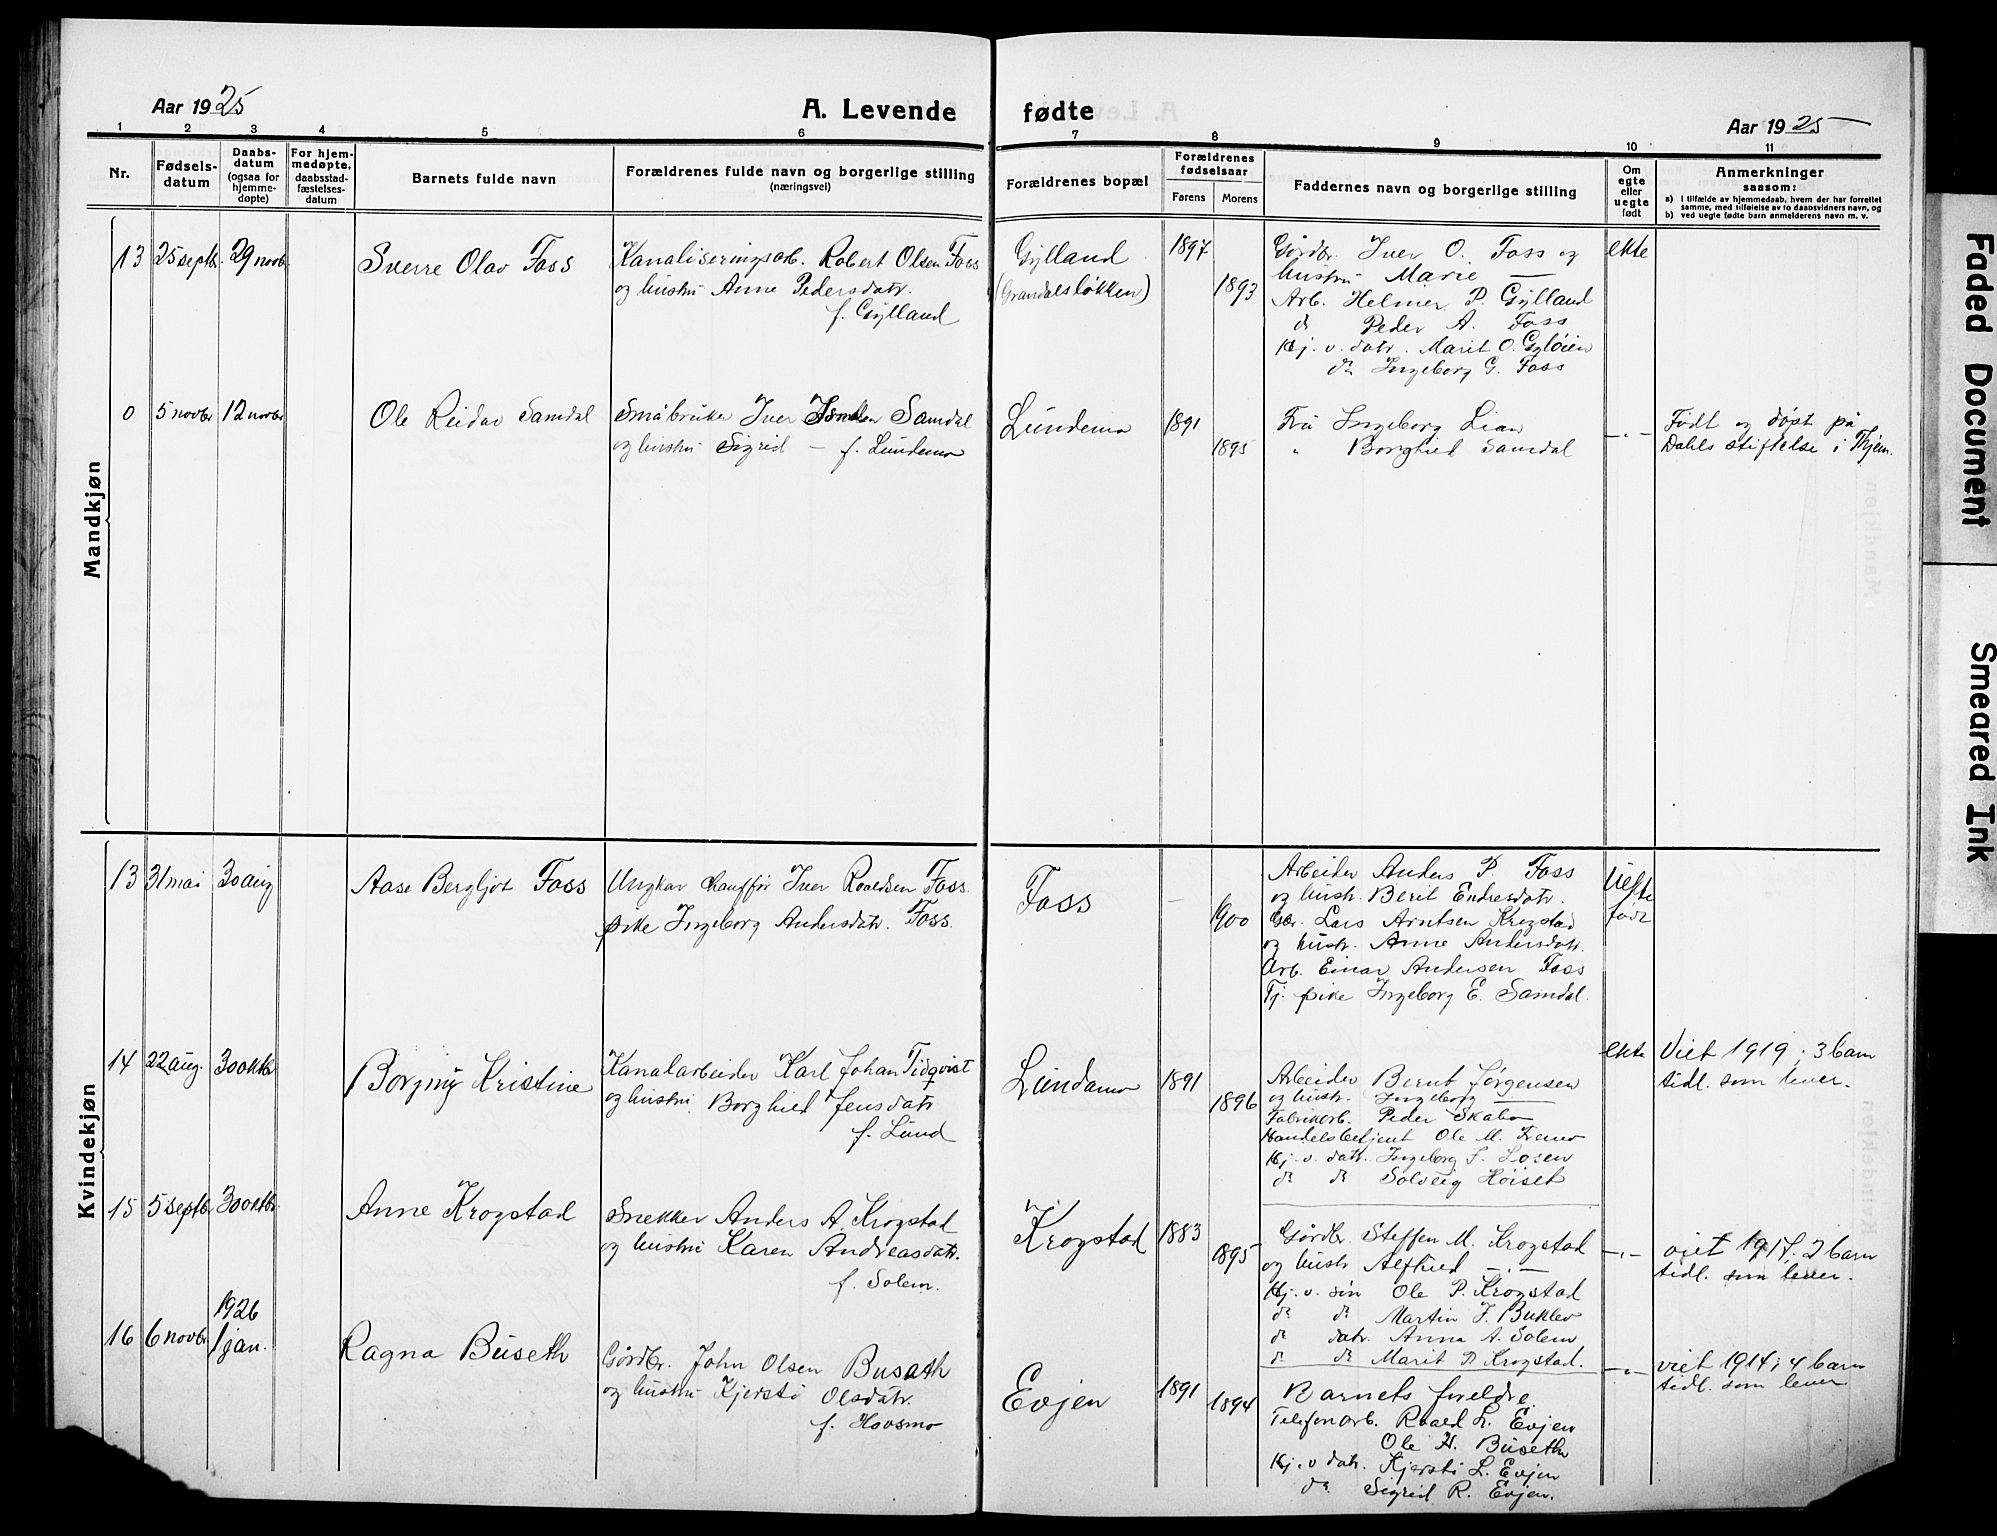 Aar 1925
A. Levende fødte
Aar 1925
1 2 3 4 5 6 7 8 9 10 11
Nr.
Fødsels-
datum
Daabs-
datum
(ogsaa for
hjemme-
døpte)
For hjem-
medøpte,
daabsstad-
fæstelses-
datum
Barnets fulde navn
Forældrenes fulde navn og borgerlige stilling
(næringsvei)
Forældrenes bopæl
Forældrenes
fødselsaar
Farens Morens
Faddernes navn og borgerlige stilling
Om
egte
eller
uegte
født
Anmerkninger
saasom:
a) i tilfælde av hjemmedaab, hvem der har forrettet
samme, med tilføielse av to daabsvidners navn, og
b) ved uegte fødte barn anmelderens navn m. v.
Mandkjøn
13 25 septbr. 29 novbr.
Sverre Olav Foss
Kanaliseringsarb. Robert Olsen Foss
og hustru Anne Pedersdatr.
f. Gylland
Gylland
(Grandalsløkken)
1897
1893
Gårdbr. Iver O. Foss og
hustru Marie —
Arb. Helmer P. Gylland
do Peder A. Foss
Hj. v. datr. Marit O. Gyløien
do Ingeborg G. Foss
ekte
0 5 novbr 12 novbr
Ole Reidar Samdal
Småbruker Iver Samdal
og hustru Sigrid — f. Lundemo
Lundemo
1891
1895
Fru Ingeborg Lian
" Borghild Samdal
— " —
Født og døpt på
Dahls stiftelse i Thjem.
Kvindekjøn
13 31 mai 30 aug
Aase Bergljot Foss
Ungkar chauffør Iver Roaldsen Foss.
pike Ingeborg Andersdatr. Foss.
Foss
—
1900
Arbeider Anders P. Foss
og hustr. Berit Endresdatr.
Gbr. Lars Arntsen Krogstad
og hustr. Anne Andersdatr.
Arb. Einar Andersen Foss
Tj. pike Ingeborg E. Samdal.
Uekte
født
14 22 aug. 30 oktbr
Borgny Kristine
Kanalarbeider Karl Johan Tidqvist
og hustru Borghild Jensdatr
f. Lund
Lundamo
1891
1896
Arbeider Bernt Jørgensen
og hustr. Ingeborg —
Fabrikarb. Peder Skabo
Handelsbetjent Ole M. Fremo
Hj. v. datr. Ingeborg J. Losen
do do Solveig Høiset
ekte
Viet 1919; 3 barn
tidl. som lever.
15 5 septbr 30 oktbr.
Anne Krogstad
Snekker Anders A. Krogstad
og hustru Karen Andreasdatr.
f. Solem.
Krogstad
1883
1895
Gårdbr. Steffen M. Krogstad
og hustr Alfhild — " —
Hj. v. søn Ole P. Krogstad
do do Martin J. Buklev
do datr. Anna A. Solem
do do Marit P. Krogstad.
— " —
viet 1917; 2 barn
tidl. som lever.
1926
16 6 novbr 1 jan.
Ragna Buseth
Gårdbr. John Olsen Buseth
og hustru Kjersti Olsdatr.
f. Hovsmo
Evjen
1891
1894
Barnets foreldre.
Telefonarb. Roald L. Evjen
Ole H. Buseth
Hj. v datr. Kjersti L. Evjen
do Sigrid R. Evjen.
— " —
viet 1914; 4 barn
tidl. som lever
Faded Document
Smeared Ink